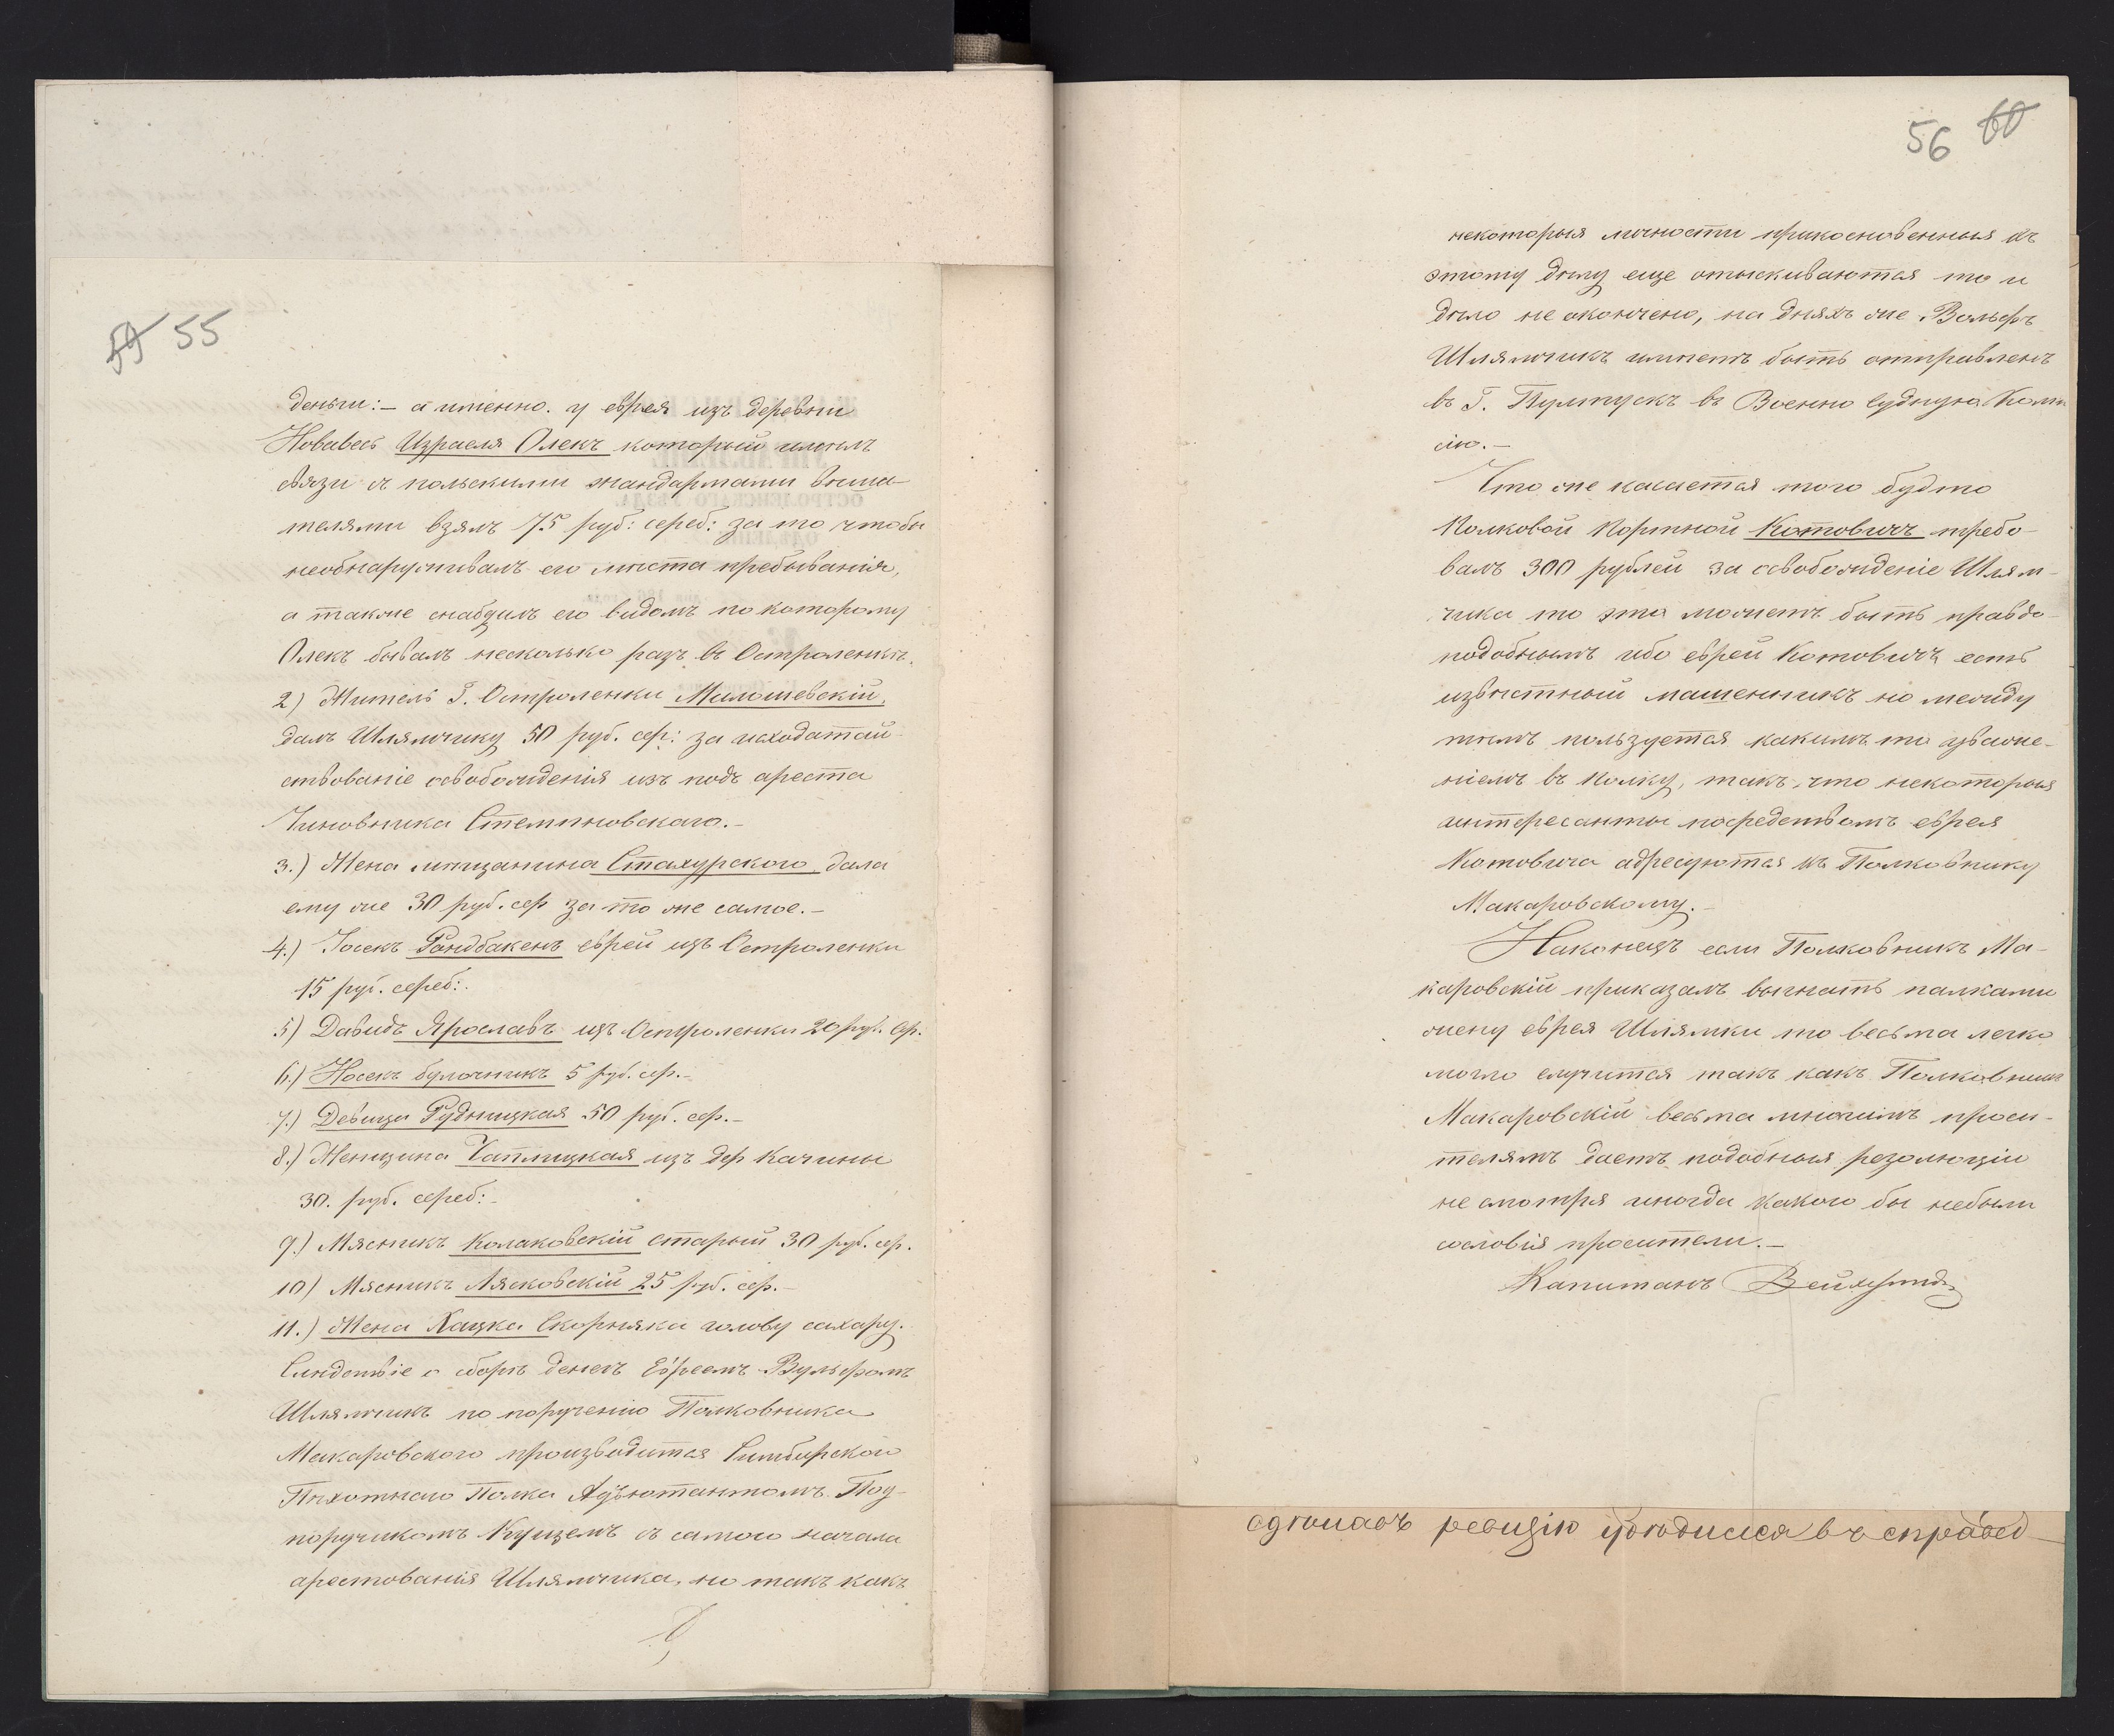 59 55
деньги:— а именно. у еврея изъ деревни
Новавесь Израеля Олекъ который имѣлъ
связи съ польскими жандармами вѣша-
телями взялъ 75 руб: сереб: за то чтобы
необнаруживалъ его мѣста пребыванія,
а также снабдилъ его видомъ по которому
Олекъ бывалъ несколько разъ въ Остроленкѣ.
2) Житель Г. Остроленки Милошевскій,
далъ Шлямчику 50 руб. сер: за исходатай-
ствованіе освобожденія изъ подъ ареста
Чиновника Стемпновскаго.—
3.) Жена мѣщанина Стахурского дала
ему же 30 руб. сер за то же самое.—
4.) Іосекъ Рондбакенъ еврей изъ Остроленки
15 руб. сереб:.
5) Давидъ Ярославъ изъ Остроленки 20 руб. сер.
6.) Носекъ булочникъ 5 руб. сер.—
7.) Девица Рудницкая 50 руб. сер.—
8.) Женщина Чаплицкая изъ дер Качины
30. руб. сереб:—
9.) Мясникъ Колаковскій старый 30 руб. сер.
10) Мясникъ Лясковскій 25 руб. сер.—
11.) Жена Хацка Скорняка голову сахару.
Слѣдствіе о сборѣ денегъ Евреемъ Вульфомъ
Шлямчикъ по порученію Полковника
Макаровского производится Симбирскаго
Пѣхотнаго Полка Адъютантомъ Под-
поручикомъ Кунцемъ съ самого начала
арестованія Шлямчика, но такъ какъ
56 60
некоторыя личности прикосновенныя къ
этому дѣлу еще отыскиваются то и
дѣло не окончено, на дняхъ же Вольфъ
Шлямчикъ имѣетъ быть отправленъ
въ Г. Пултускъ въ Военно Судную Коми
сію.—
Что же касается того будто
Полковой Портной Котовичъ требо-
валъ 300 рублей за освобожденіе Шлям-
чика то это можетъ быть правдо-
подобнымъ ибо еврей Котовичъ есть
извѣстный машенникъ но между
тѣмъ пользуется какимъ то уваже-
ніемъ въ Полку, такъ что некоторыя
интересанты посредствомъ еврея
Котовича адресуются къ Полковнику
Макаровскому.—
Наконецъ если Полковникъ Ма-
каровскій приказалъ выгнать палками
жену еврея Шлямки то весьма легко
могло случится такъ какъ Полковникъ
Макаровскій весьма многимъ проси-
телямъ даетъ подобныя резолюціи
не смотря иногда какого бы небыли
сословія просители.—
Капитанъ
ревизію въ справед-